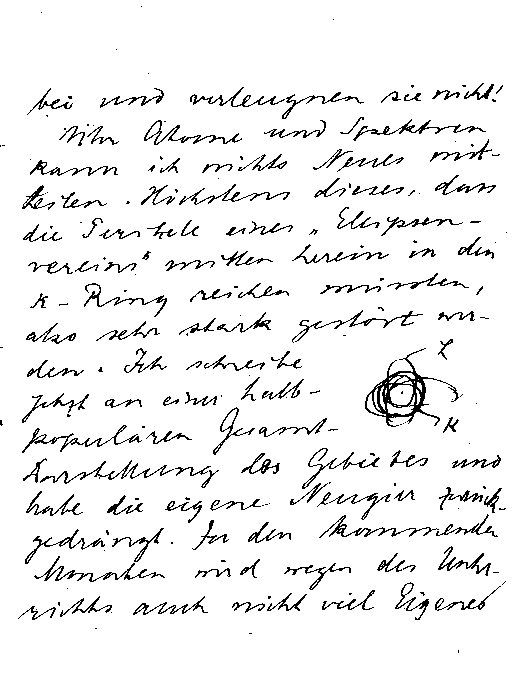 bei und verleugnen sie nicht!
Über Atome und Spektren
kann ich nichts Neues mit-
teilen. Höchstens dieses, dass
die Perihele eines „Ellipsen-
vereins“ mitten herein in den
K-Ring reichen müssten,
also sehr stark gestört wer-
den. Ich schreibe
L
jetzt an einer halb-
populären Gesamt-
K
Darstellung des Gebietes und
habe die eigene Neugier zurück-
gedrängt. In den kommenden
Monaten wird wegen des Unter-
richts auch nicht viel Eigenes